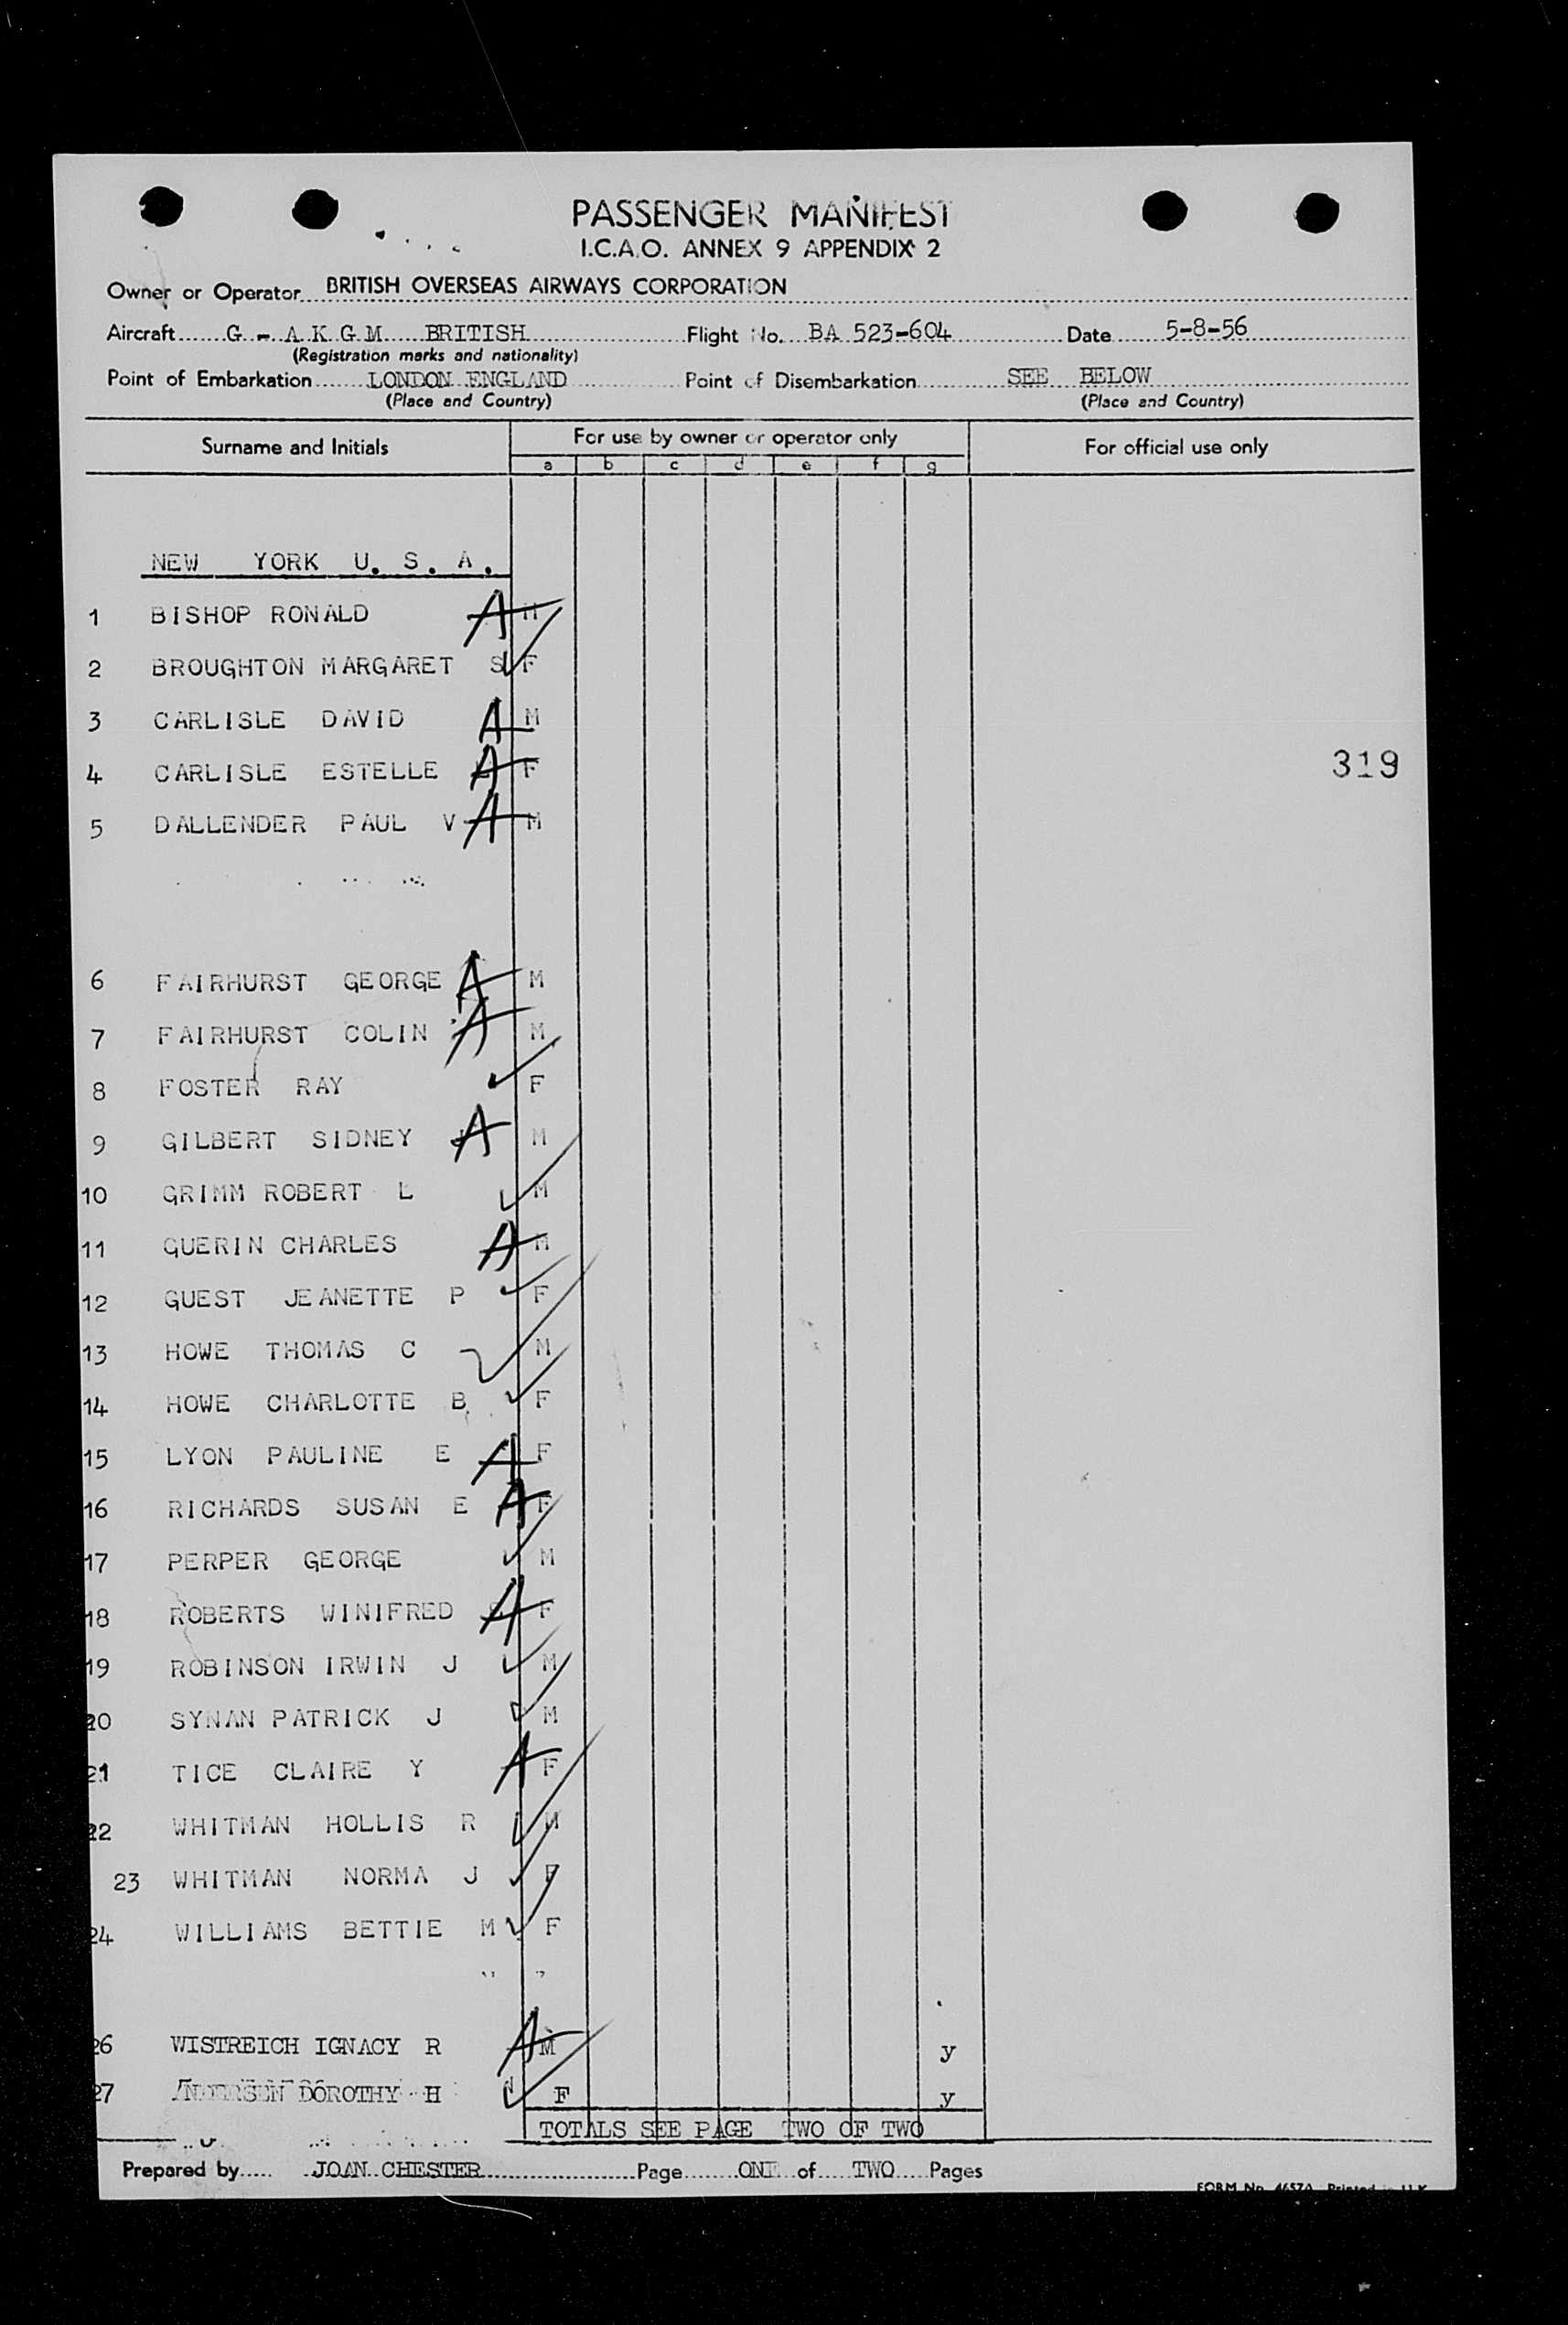 PASSENGER MANIFEST
I.C.A.O. ANNEX 9 APPENDIX 2
Owner or Operator BRITISH OVERSEAS AIRWAYS CORPORATION
Aircraft G - A K G M BRITISH Flight No. BA 523-604 Date 5-8-56
(Registration marks and nationality)
Point of Embarkation LONDON ENGLAND Point of Disembarkation SEE BELOW
(Place and Country) (Place and Country)
Surname and Initials For use by owner or operator only For official use only
a b c d e f g
NEW YORK U. S. A.
1 BISHOP RONALD A M
2 BROUGHTON MARGARET S ✓ F
3 CARLISLE DAVID A M
4 CARLISLE ESTELLE A F 319
5 DALLENDER PAUL V A M
6 FAIRHURST GEORGE A M
7 FAIRHURST COLIN A M
8 FOSTER RAY ✓ F
9 GILBERT SIDNEY A M
10 GRIMM ROBERT L ✓ M
11 GUERIN CHARLES A M
12 GUEST JEANETTE P ✓ F
13 HOWE THOMAS C ✓ M
14 HOWE CHARLOTTE B ✓ F
15 LYON PAULINE E A F
16 RICHARDS SUSAN E A F
17 PERPER GEORGE ✓ M
18 ROBERTS WINIFRED A F
19 ROBINSON IRWIN J ✓ M
20 SYNAN PATRICK J ✓ M
21 TICE CLAIRE Y A F
22 WHITMAN HOLLIS R ✓ M
23 WHITMAN NORMA J ✓ F
24 WILLIAMS BETTIE M ✓ F
26 WISTREICH IGNACY R A M y
27 DOROTHY H ✓ F y
TOTALS SEE PAGE TWO OF TWO
Prepared by JOAN CHESTER Page ONE of TWO Pages
FORM No. 4657A Printed in U.K.